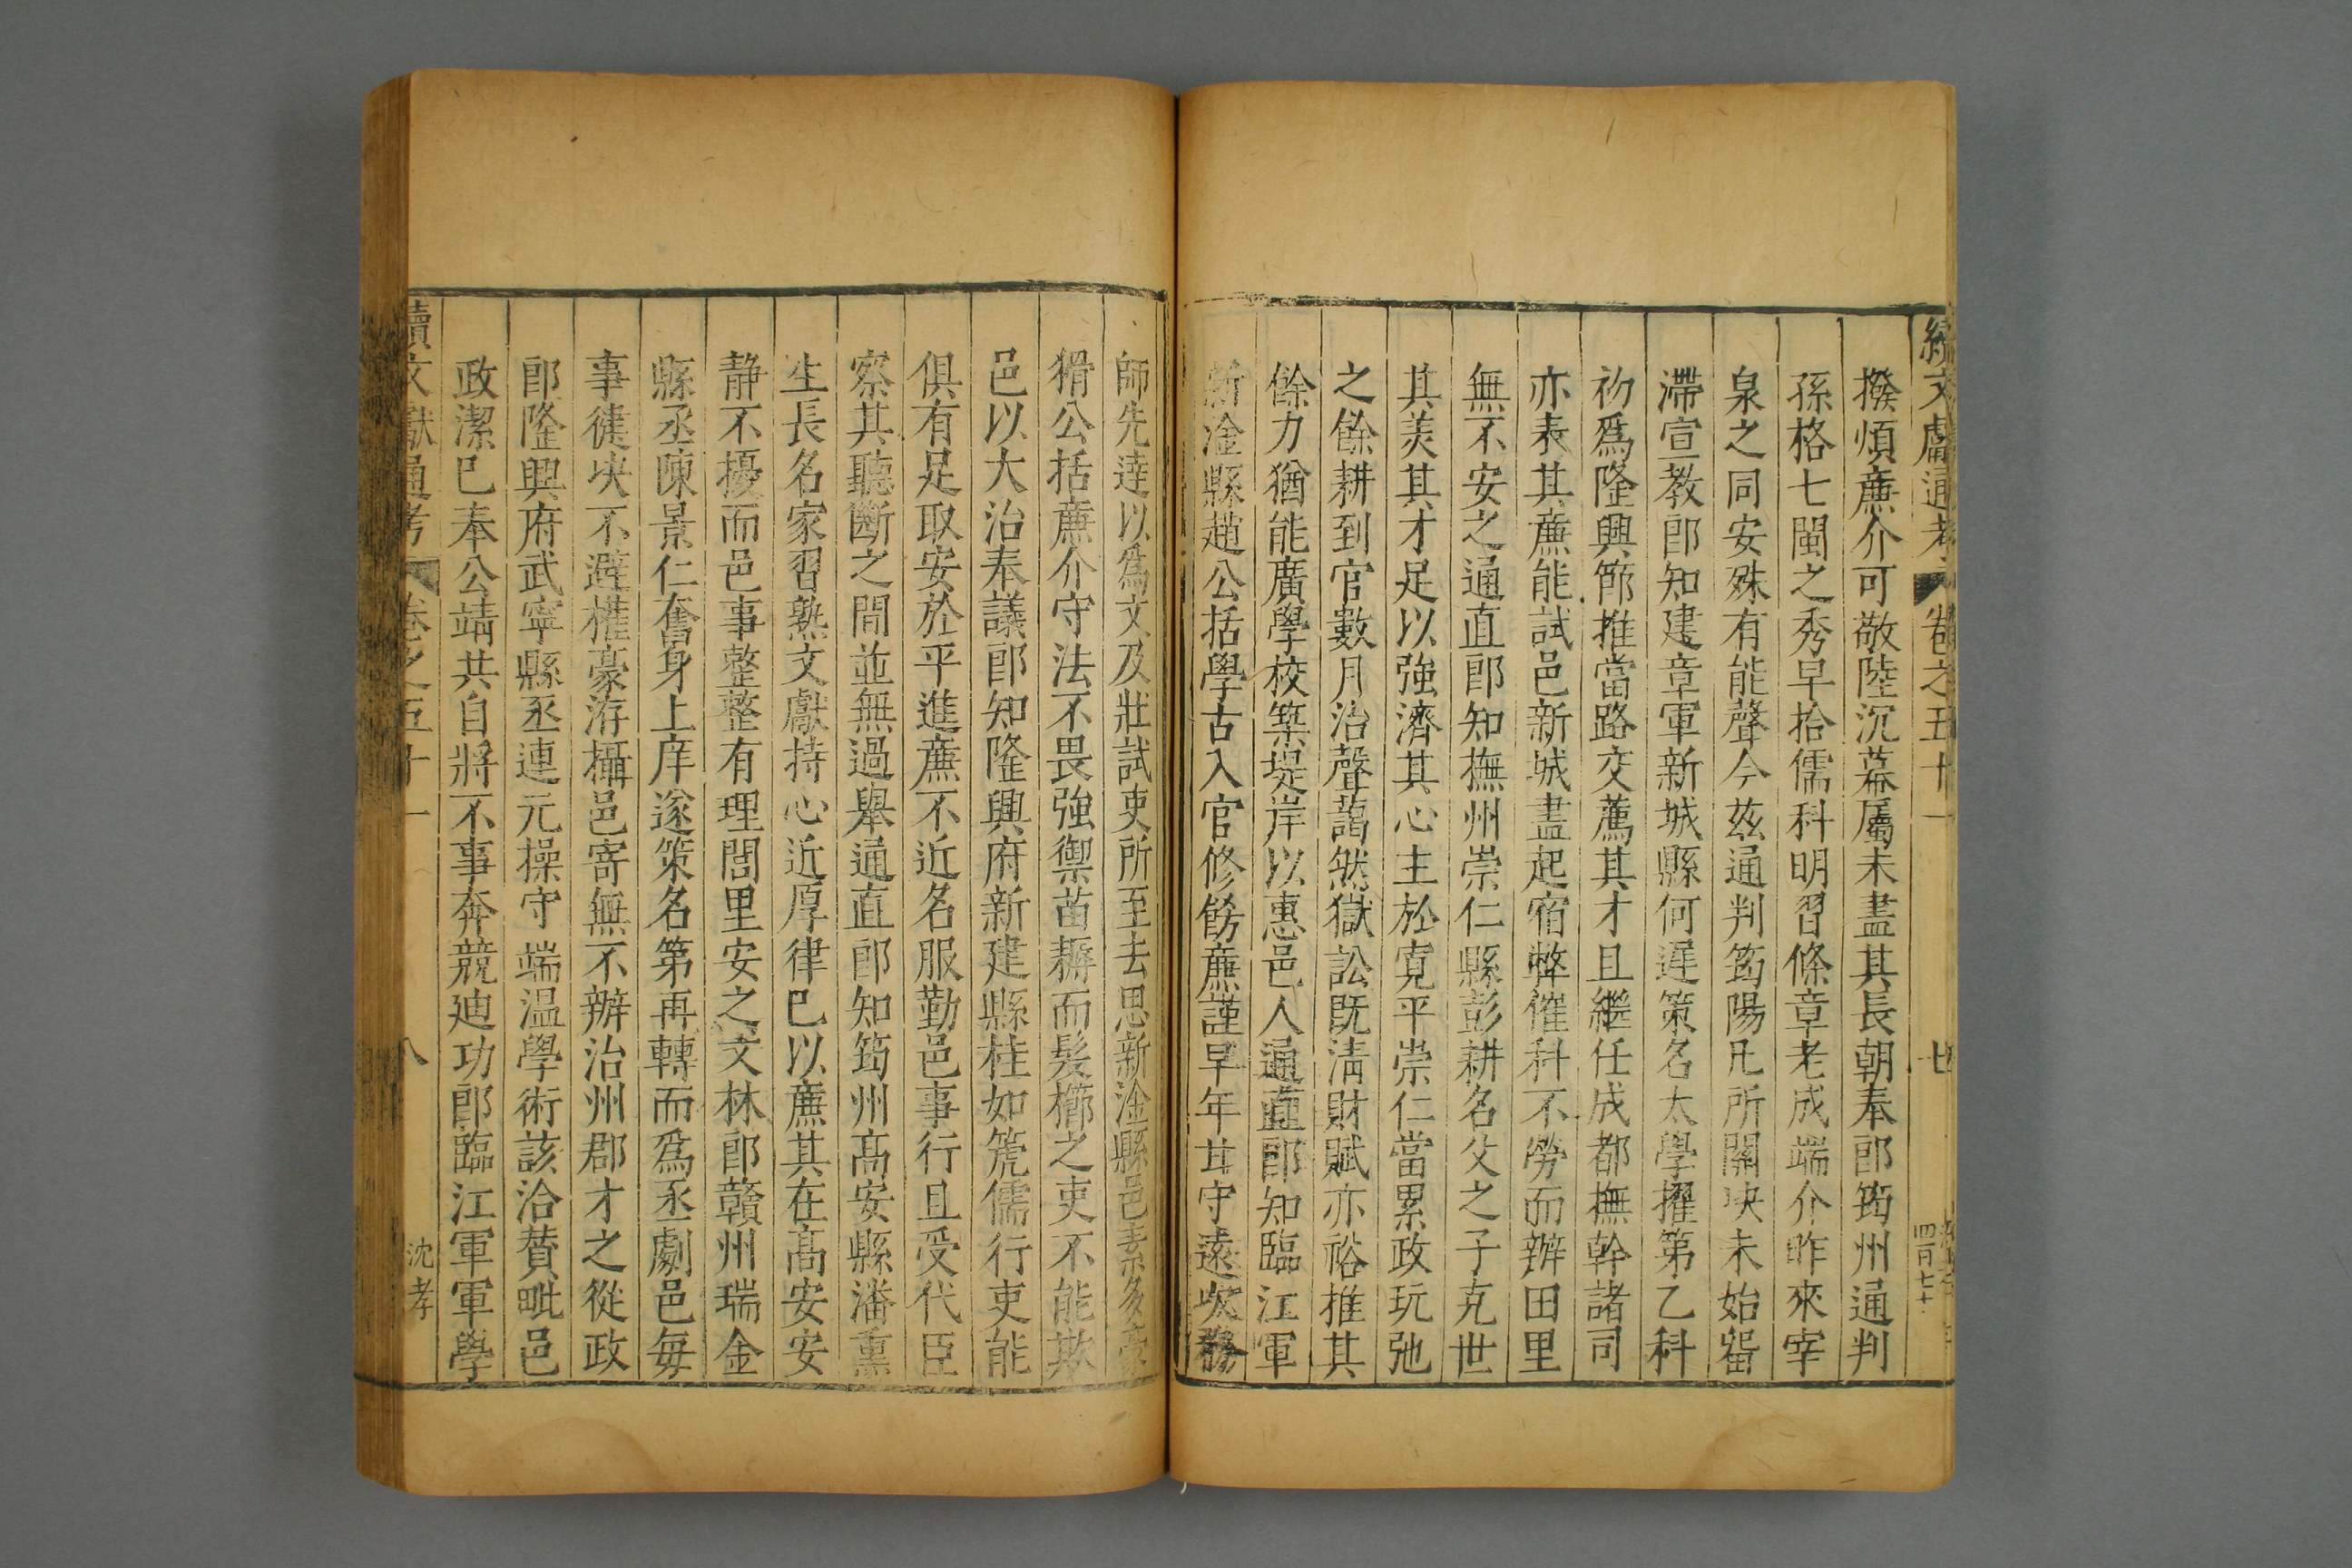 續文獻通考 卷之五十一 廿
撥煩亷介可敬陸沉幕屬未盡其長朝奉郎筠州通判
孫格七閩之秀早拾儒科明習條章老成端介昨來宰
泉之同安殊有能聲今兹通判筠陽凡所關决未始留
滯宣教郎知建章軍新城縣何遲策名太學擢第乙科
初爲隆興節推當路交薦其才且繼任成都撫幹諸司
亦表其亷能試邑新城盡起宿弊催科不勞而辦田里
無不安之通直郎知撫州崇仁縣彭耕名父之子克世
其美其才足以強濟其心主於寛平崇仁當累政玩弛
之餘耕到官數月治聲藹然獄訟既清財賦亦裕推其
餘力猶能廣學校築堤岸以惠邑人通直郎知臨江軍
新淦縣趙公括學古入官修飭亷謹早年廿守遠次務
師先逹以爲文及壯試吏所至去思新淦縣邑素多豪
猾公括亷介守法不畏強禦苗耨而髮櫛之吏不能欺
邑以大治奉議郎知隆興府新建縣桂如箎儒行吏能
俱有足取安於平進亷不近名服勤邑事行且受代臣
察其聽斷之間並無過舉通直郎知筠州高安縣潘熏
生長名家習熟文獻持心近厚律巳以亷其在高安安
静不擾而邑事整整有理閭里安之文林郎贛州瑞金
縣丞陳景仁奮身上庠遂策名第再轉而爲丞劇邑毎
事徤决不避權豪洊攝邑寄無不辦治州郡才之從政
郎隆興府武寧縣丞連元操守端温學術該洽賛毗邑
政潔巳奉公靖共自將不事奔競廸功郎臨江軍軍學
續文獻通考 卷之五十一 八 沈孝